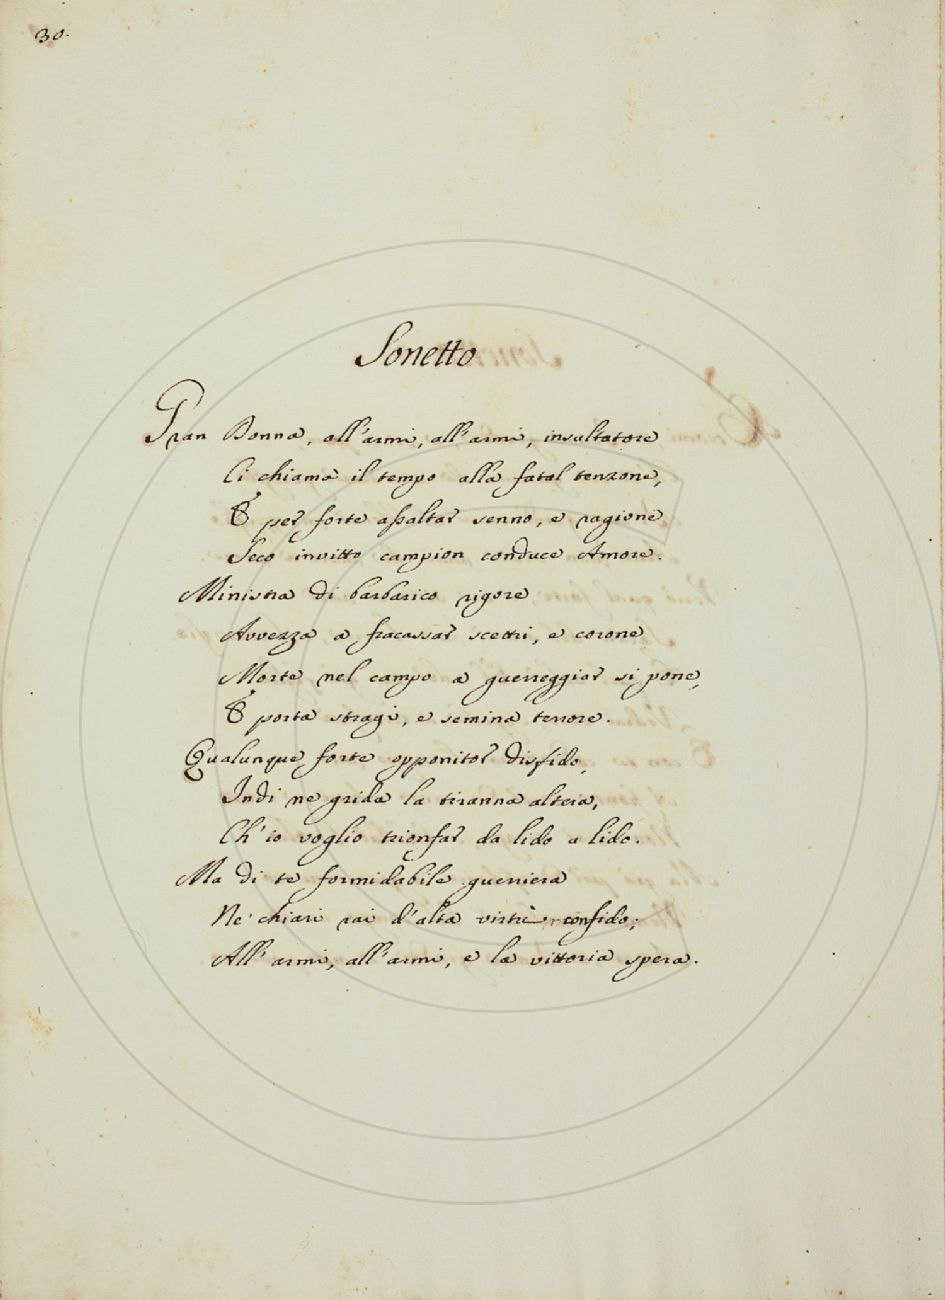 30.
Sonetto
Gran Donna, all'armi, all'armi, insultatore
Ci chiama il tempo alla fatal tenzone,
E per forte assaltar senno, e ragione
Seco invitto campion conduce Amore.
Ministra di barbarico rigore
Avvezza a fracassar scettri, e corone
Morte nel campo a guerreggiar si pone,
E porta stragi, e semina terrore.
Qualunque forte opponitor disfido,
Indi ne grida la tiranna altera,
Ch'io voglio trionfar da lido a lido.
Ma di te formidabile guerriera
Ne' chiari rai d'alta virtù confido;
All'armi, all'armi, e la vittoria spera.